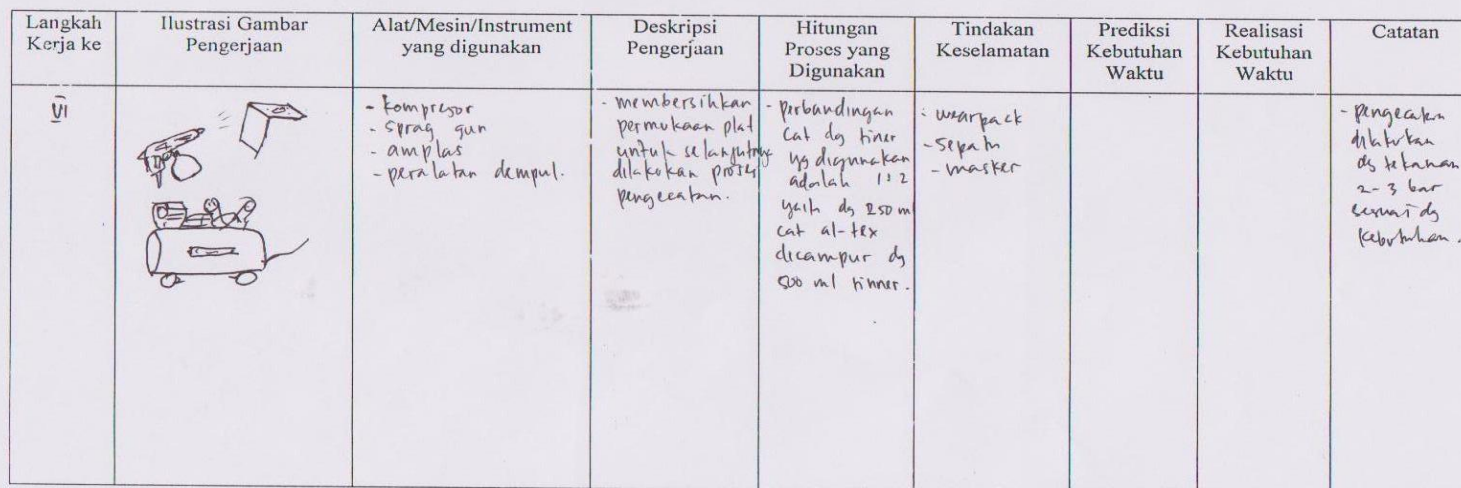 Langkah
Kerja ke
Ilustrasi Gambar
Pengerjaan
Alat/Mesin/Instrument
yang digunakan
Deskripsi
Pengerjaan
Hitungan
Proses yang
Digunakan
Tindakan
Keselamatan
Prediksi
Kebutuhan
Waktu
Realisasi
Kebutuhan
Waktu
Catatan
VI
- kompresor
- spray gun
- amplas
- peralatan dempul.
- membersihkan
permukaan plat
untuk selanjutnya
dilakukan proses
pengecatan.
- perbandingan
cat dg tiner
yg digunakan
adalah 1:2
yaitu dg 250 ml
cat al-tex
dicampur dg
500 ml tinner.
- wearpack
- sepatu
- masker
- pengecatan
dilakukan
dg tekanan
2-3 bar
sesuai dg
kebutuhan.